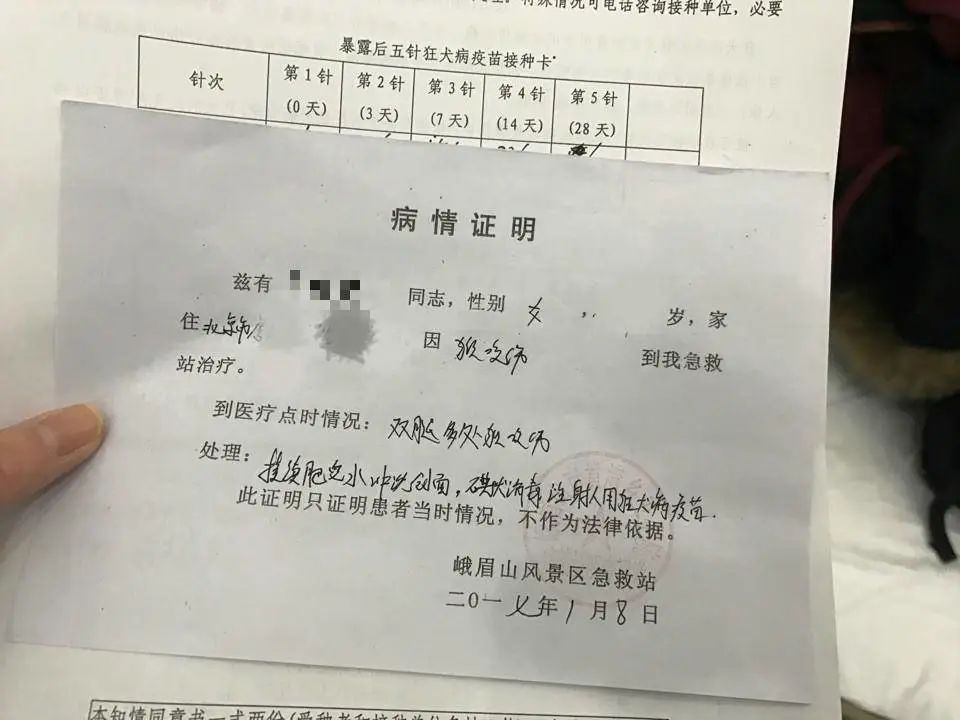 特殊情况可电话咨询接种单位，必要
暴露后五针狂犬病疫苗接种卡
针次 第1针 第2针 第3针 第4针 第5针
(0天) (3天) (7天) (14天) (28天)
病情证明
兹有 同志，性别 女 ，. 岁，家
住 北京 因 猴咬伤 到我急救
站治疗。
到医疗点时情况： 双腿多处猴咬伤
处理： 肥皂水冲洗创面，碘伏消毒 注射人用狂犬病疫苗.
此证明只证明患者当时情况，不作为法律依据。
峨眉山风景区急救站
二〇一七年1月8日
本知情同意书一式两份